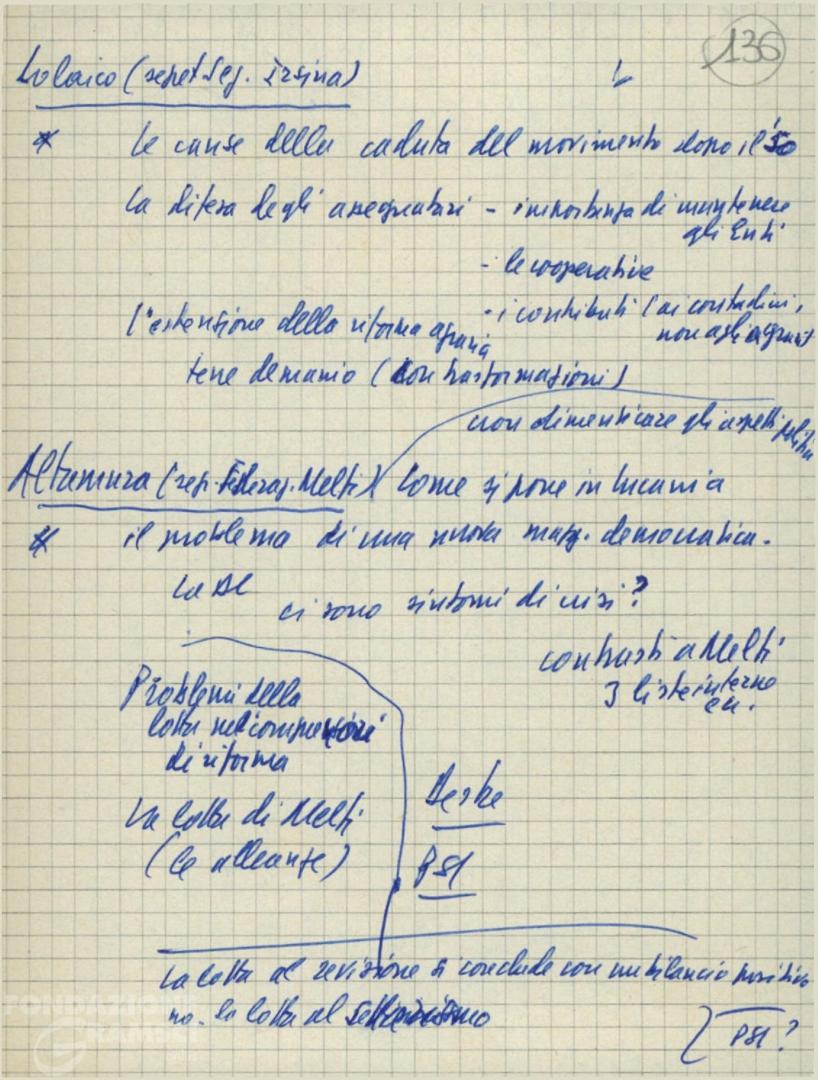 136
Lolaico (segret. Sez. Irsina)
* Le cause della caduta del movimento dopo il '50
La difesa degli assegnatari - importanza di mantenere
gli Enti
- le cooperative
- i contributi ai contadini,
non agli agrari
l'estensione della riforma agraria
terre demanio (con trasformazioni)
non dimenticare gli aspetti politici
Altamura (segr. Federaz. Melfi) Come si pone in Lucania
* il problema di una nuova magg. democratica.
La DC
ci sono sintomi di crisi?
contrasti a Melfi
3 liste interne
ecc.
Problemi della
lotta nei comprensori
di riforma
La lotta di Melfi
(le alleanze)
Destre
PSI
La lotta al revisione si conclude con un bilancio positivo
no. la lotta al settarismo
PSI?
FONDAZIONE
GRAMSCI